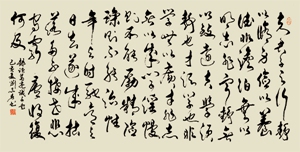 夫君子之行静
以修身俭以养
德非澹泊无以
明志非宁静无
以致远夫学须
静也才须学也
非学无以广才非志
无以成学
则不能励精险
躁则不能治性
年与时驰意与
日去遂成枯
落多不接世悲
守穷庐将复
何及
诸葛亮诫子书